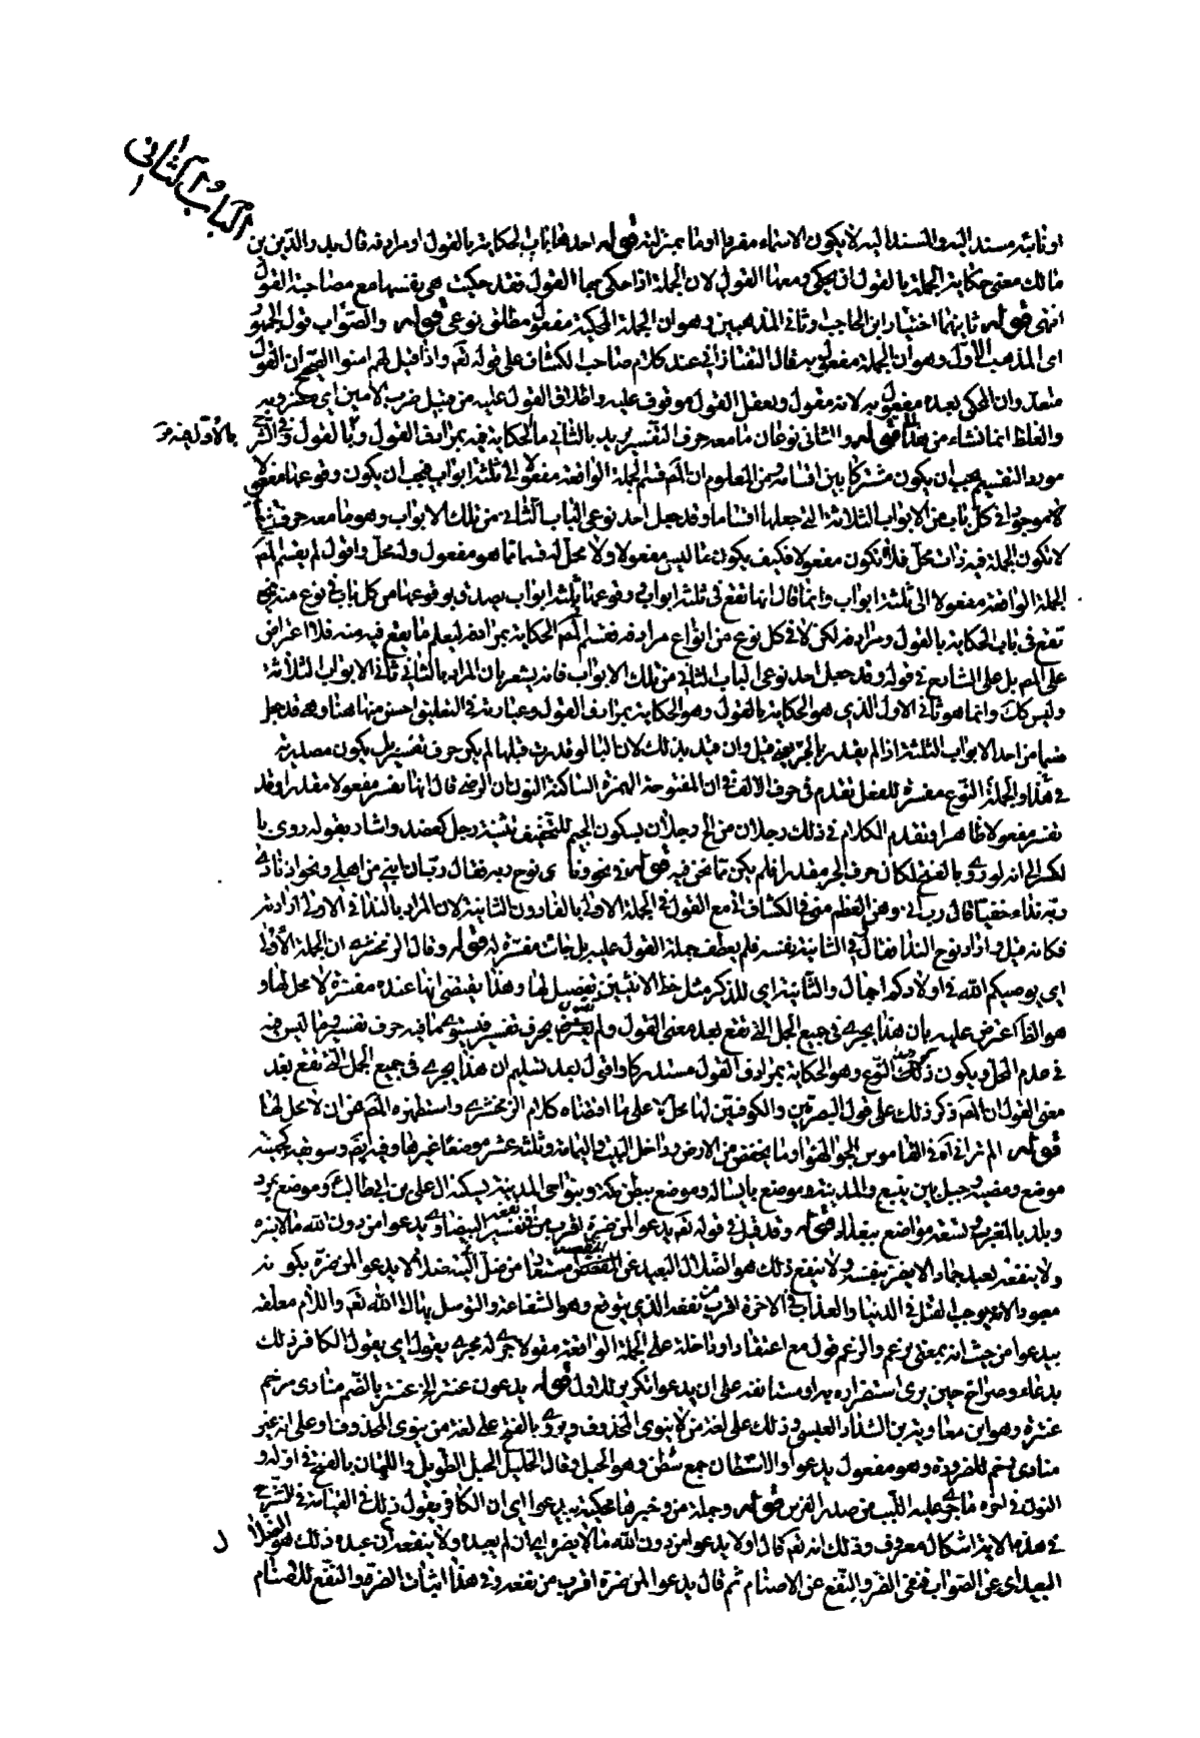 الباب الثاني
او نائبه مسند اليه والمسند اليه لا يكون الا اسما مفردا او ما بمنزلته قوله احدها باب الحكاية بالقول او مرادفه قال بدر الدين بن
مالك معنى حكاية الجملة بالقول ان يحكى ومعها القول لان الجملة اذا حكى بها القول فقد حكيت هي بنفسها مع مصاحبة القول
انتهى قوله ثانيهما اختيار ابن الحاجب وثاني المذهبين وهو ان الجملة المحكية مفعول مطلق نوعي قوله والصواب قول الجمهور
اى المذهب الاول وهو ان الجملة مفعول به قال التفتازاني عند كلام صاحب الكشاف على قوله تع واذا قيل لهم امنوا الصحيح ان القول
متعد وان المحكى بعده مفعول به لانه مقول وتعقل القول موقوف عليه واطلاق القول عليه من قبيل ضرب الامير اي مضروبه
والغلط انما نشاء من هذا قوله والثاني نوعان ما معه حرف التفسير يريد بالثاني ما الحكاية فيه بمرادف القول و بالقول وفي الشرح
بالاول فيه
مورد التقسيم يجب ان يكون مشتركا بين اقسامه ومن المعلوم ان المص قسم الجملة الواقعة مفعولا الى ثلثة ابواب فيجب ان يكون وقوعها مفعولا
موجودا في كل باب من الابواب الثلاثة التي جعلها اقساما وقد جعل احد نوعي الباب الثاني من تلك الابواب وهو ما معه حرف تفسير
لا تكون الجملة فيه ذات محل فلا تكون مفعولا فكيف يكون ما ليس مفعولا ولا محل له قسما مما هو مفعول وله محل واقول لم يقسم المص
الجملة الواقعة مفعولا الى ثلثة ابواب وانما قال انها تقع في ثلثة ابواب ووقوعها في ثلثة ابواب يصدق بوقوعها من كل باب في نوع منه فهي
تقع في باب الحكاية بالقول ومرادفه لكن لا في كل نوع من انواع مرادفه فقسم المص الحكاية بمرادفه ليعلم ما يقع فيه منه فلا اعتراض
على المص بل على الشارح في قوله وقد جعل احد نوعي الباب الثاني من تلك الابواب فانه يشعر بان المراد بالثاني ثاني الابواب الثلاثة
وليس كك وانما هو ثاني الاول الذي هو الحكاية بالقول وهو الحكاية بمرادف القول وعبارته في التعليق احسن منها هنا وهي قد جعل
قسما من احد الابواب الثلثة اذا لم يقدر بالجر قبل وان قيد بذلك لان البا لو قدرت قبلها لم يكن حرف تفسير بل يكون مصدرية
في هذا والجملة النوع مفسرة للفعل تقدم في حرف الالف في ان المفتوحة الهمزة الساكنة النون ان الرضي قال انها تفسر مفعولا مقدرا وقد
تفسر مفعولا ظاهرا وتقدم الكلام في ذلك رجلان من الخ رجلان بسكون الجيم للتخفيف تثنية رجل كعضد واشار بقوله روى با
لكسر الى انه لو روى بالفتح لكان حرف الجر مقدرا فلم يكن مما نحن فيه قوله في نحو ونادى نوح ربه فقال رب ان ابني من اهلي ونحو اذ نادى
ربه نداء خفيا قال رب اني وهن العظم مني في الكشاف انه مع القول في الجملة الاولى بالفا دون الثانية لان المراد بالندا في الاولى ارادته
فكانه قيل واراد نوح الندا فقال وفي الثانية نفسه فلم يعطف جملة القول عليه بل جاءت مفسرة له قوله وقال الزمخشري ان الجملة الاولى
اي يوصيكم الله في اولادكم اجمال والثانية اي للذكر مثل حظ الانثيين تفصيل لها وهذا يقتضي انها عنده مفسرة لا محل لها و
هو الظ اعترض عليه بان هذا يجرى في جميع الجمل التي تقع بعد معنى القول ولم تقترن بحرف تفسير فيستوى ما فيه حرف تفسير وما ليس فيه
في عدم المحل ويكون ذكر ذلك النوع وهو الحكاية بمرادف القول مستدركا واقول بعد تسليم ان هذا يجرى في جميع الجمل التي تقع بعد
معنى القول ان المص ذكر ذلك على قول البصريين والكوفيين لها محل لا على ما اقتضاه كلام الزمخشري واستظهره المص من ان لا محل لها
قوله الم تر اني اه في القاموس الجو الهواء وما انخفض من الارض وداخل البيت واليمامة وثلثة عشر موضعا غيرها وفيه ايضا وسويقة كجهينة
موضع وهضبة وجبل بين ينبع والمدينة وموضع بالسيالة وموضع ببطن مكة وبنواحي المدينة يسكنه ال علي بن ابي طالب ع وموضع بمرو
وبلد بالمغرب وتسعة مواضع ببغداد قوله وقد قيل في قوله تع يدعو لمن ضره اقرب من نفعه في تفسير البيضاوي يدعوا من دون الله ما لا يضره
ولا ينفعه يعبد جمادا لا يضر بنفسه ولا ينفع ذلك هو الضلال البعيد عن المقصد مستعار من ضلال من ابعد في التيه ضالا يدعو لمن ضره بكونه
معبودا لانه يوجب القتل في الدنيا والعذاب في الاخرة اقرب من نفعه الذي يتوقع وهو الشفاعة والتوسل بها الى الله تع واللام معلقه
بيدعو من حيث انه بمعنى يزعم والزعم قول مع اعتقاد او داخلة على الجملة الواقعة مقولا اجراء له مجرى يقول اي يقول الكافر ذلك
بدعاء وصراخ حين يرى استضراره به او مستانفة على ان يدعوا تكرير للاول قوله يدعون عنتر الخ عنتر بالضم منادى مرخم
عنترة وهو ابن معاوية بن الشداد العبسي وذلك على لغة من لا ينوى المحذوف ويروى بالفتح على لغة من ينوى المحذوف او على انه غير
منادى رخم للضرورة وهو مفعول يدعوا والاشطان جمع شطن وهو الحبل وقال الخليل الحبل الطويل واللبان بالفتح في اوله و
النون في اخره ما جرى عليه اللبب من صدر الفرس قوله وجملة من وخبرها محكية بيدعوا اي ان الكافر يقول ذلك في القيامة في الشرح
في هذه الاية اشكال معروف وذلك انه تع قال اولا يدعوا من دون الله ما لا يضره اي ان لم يعبده ولا ينفعه ان عبده ذلك هو الضلال
البعيد اى عن الصواب فنفى الضر والنفع عن الاصنام ثم قال يدعو لمن ضره اقرب من نفعه وفي هذا اثبات الضر والنفع للاصنام